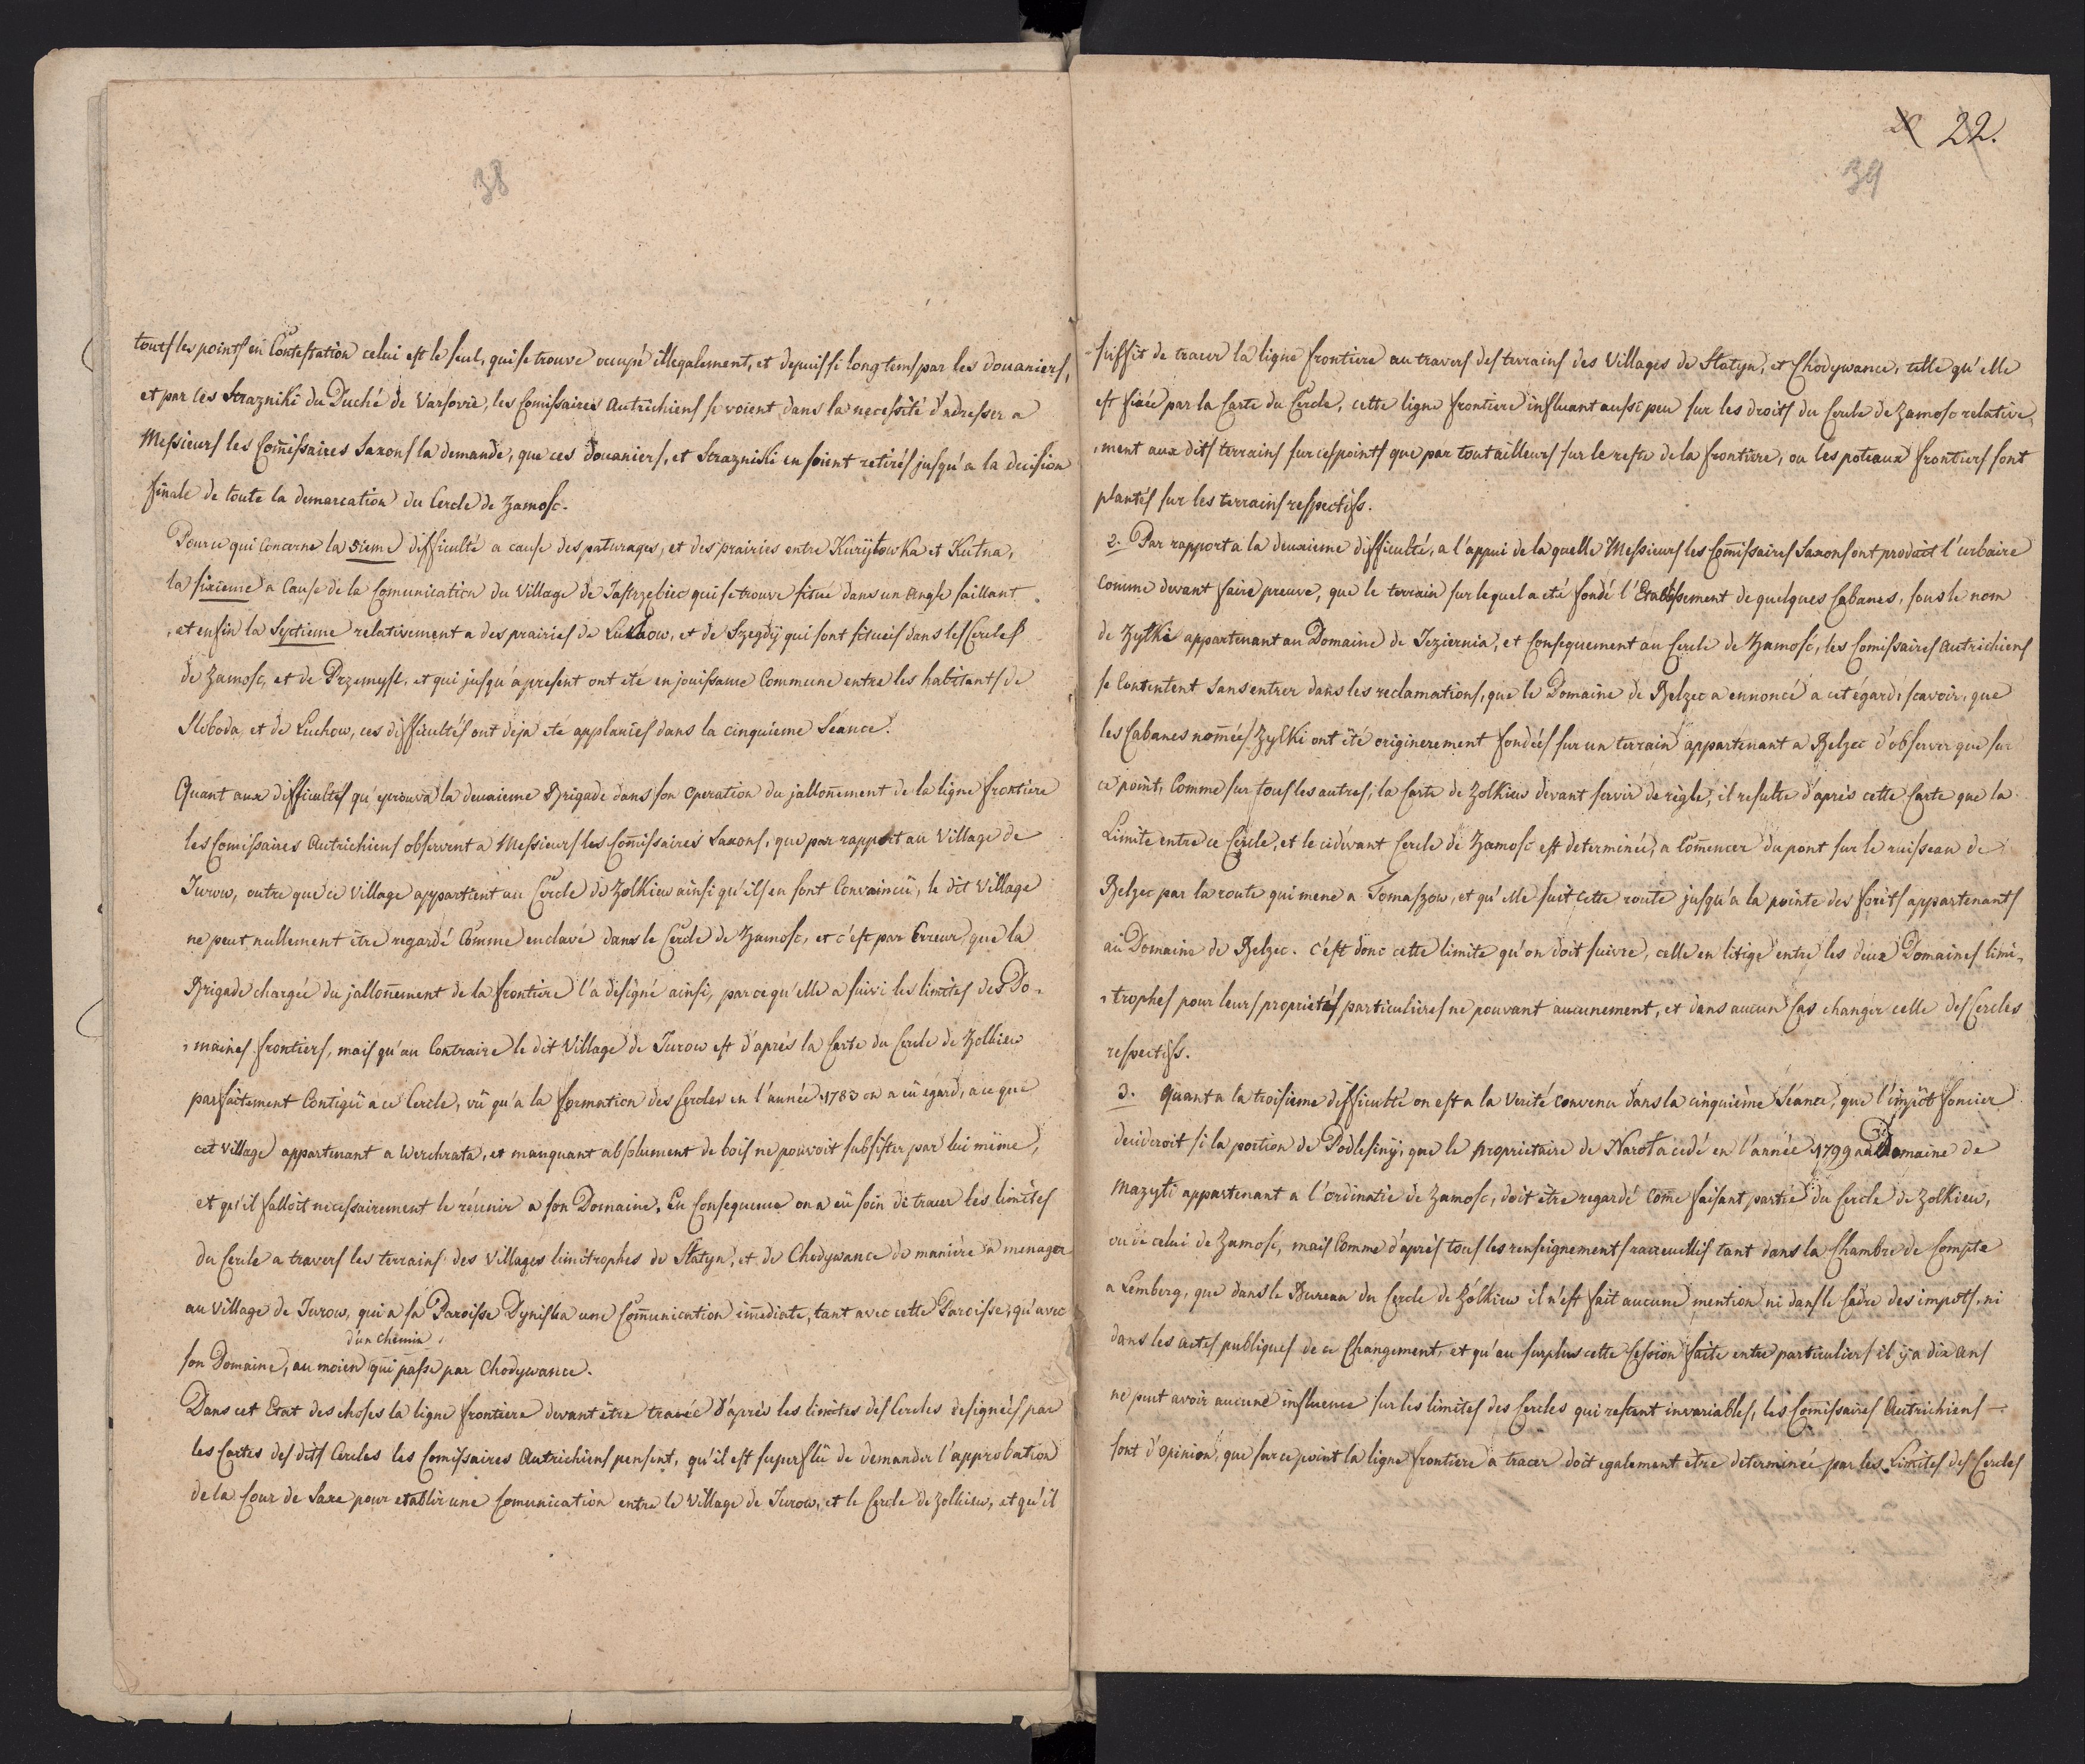 38
tous les points en Contestation celui est le seul, qui se trouve occupé illegalement, et depuis si long tems par les douaniers,
et par les Strazniki du Duché de Varsovie, les Comissaires Autrichiens se voient dans la necessité d'adresser a
Messieurs les Com̄issaires Saxons la demande, que ces douaniers, et Strazniki en soient retirés jusqu'a la decision
finale de toute la demarcation du Cercle de Zamosc.
Pour ce qui Concerne la 5ieme difficulté a cause des paturages, et des prairies entre Kuryłowka et Kutna,
la sixieme a Cause de la Comunication du Village de Jastrzębiec qui se trouve situé dans un Angle saillant
et enfin la Septieme relativement a des prairies de Luchow, et de Szegdÿ qui sont situeis dans les Cercles
de Zamosc, et de Przemysl, et qui jusqu'a present ont ete en jouissance Commune entre les habitants de
Sloboda, et de Luchow, ces difficultés ont deja ete applanies dans la cinquieme Séance.
Quant aux difficultés qu'eprouva la deuxieme Brigade dans son Operation du jallon̄ement de la ligne frontiere
les Comissaires Autrichiens observent a Messieurs les Com̄issaires Saxons, que par rapport au Village de
Jurow, outre que ce Village appartient au Cercle de Zolkiew ainsi qu'ils en sont Convaincü, le dit Village
ne peut nullement être regardé Comme enclavé dans le Cercle de Zamosc, et c'est par Erreur que la
Brigade chargée du jallon̄ement de la frontiere l'a designé ainsi, parce qu'elle a suivi les limites des Do-
maines frontiers, mais qu'au Contraire le dit Village de Jurow est d'après la Carte du Cercle de Zolkiew
parfaitement Contigü a ce Cercle, vû qu'a la formation des Cercles en l'année 1783 on a eü egard, a ce que
cet Village appartenant a Werchrata, et manquant absolument de bois ne pouvoit subsister par lui même,
et qu'il falloit necessairement le réunir a son Domaine. En Consequence on a eü soin de tracer les limites
du Cercle a travers les terrains des Villages limitrophes de Statyn, et de Chodywance de manière a menager
au Village de Jurow, qui a sa Paroisse Dyniska une Com̄unication im̄ediate, tant avec cette Paroisse, qu'avec
d'un Chemin
son Domaine, au moien qui passe par Chodywance.
Dans cet Etat des choses la ligne frontiere devant être tracée d'après les limites des Cercles designées par
les Cartes des dits Cercles les Comissaires Autrichiens pensent, qu'il est superflü de demander l'approbation
de la Cour de Saxe pour etablir une Comunication entre le Village de Jurow, et le Cercle de Zolkiew, et qu'il
22.
39
suffit de tracer la ligne frontiere au travers des terrains des Villages de Statyn, et Chodywance, telle qu'elle
est fixée par la Carte du Cercle, cette ligne frontiere influant aussi peu sur les droits du Cercle de Zamosc relative,
ment aux dits terrains sur ces points que par tout ailleurs sur le reste de la frontiere, ou les poteaux frontiers sont
plantés sur les terrains respectifs.
2. Par rapport a la deuxieme difficulté, a l'appui de la quelle Messieurs les Com̄issaires Saxons ont produit l'urbaire
comme devant faire preuve, que le terrain sur lequel a eté fondé l'Etablissement de quelques Cabanes, sous le nom
de Zyłki appartenant au Domaine de Jeziernia, et Consequement au Cercle de Zamosc, les Comissaires Autrichiens
se Contentent sans entrer dans les reclamations, que le Domaine de Belzec a ennoncé a cet égard, scavoir, que
les Cabanes nom̄ées Zyłki ont ete originerement fondées sur un terrain appartenant a Belzec d'observer que sur
ce point, Comme sur tous les autres, la Carte de Zolkiew devant servir de règle, il resulte d'après cette Carte que la
Limite entre ce Cercle, et le cidevant Cercle de Zamosc est determinée, a com̄encer du pont sur le ruisseau de
Belzec par la route qui mene a Tomaszow, et qu'elle suit cette route jusqu'a la pointe des forêts appartenants
au Domaine de Belzec. C'est donc cette limite qu'on doit suivre, celle en litige entre les deux Domaines limi-
trophes pour leurs proprietés particulieres ne pouvant aucunement, et dans aucun Cas changer celle des Cercles
respectifs.
3. Quant a la troisieme difficulté on est a la Verité convenu dans la cinquième Séance, que l'impôt foncier
decideroit si la portion de Podlesinÿ, que le proprietaire de Narol a cedé en l'année 1799 au Domaine de
Mazyłi appartenant a l'ordinatie de Zamosc, doit être regardé com̄e faisant partie du Cercle de Zolkiew,
ou de celui de Zamosc, mais Comme d'après tous les renseignements raccueillis tant dans la Chambre de Compte
a Lemberg, que dans le Bureau du Cercle de Zólkiew il n'est fait aucune mention ni dans le Cadre des impots, ni
dans les actes publiques de ce Changement, et qu'au surplus cette Cession faite entre particuliers il ÿ a dix ans
ne peut avoir aucune influence sur les limites des Cercles qui restent invariables, les Com̄issaires Autrichiens
sont d'Opinion, que sur ce point la ligne frontiere a tracer doit egalement être determinée par les Limites des Cercles